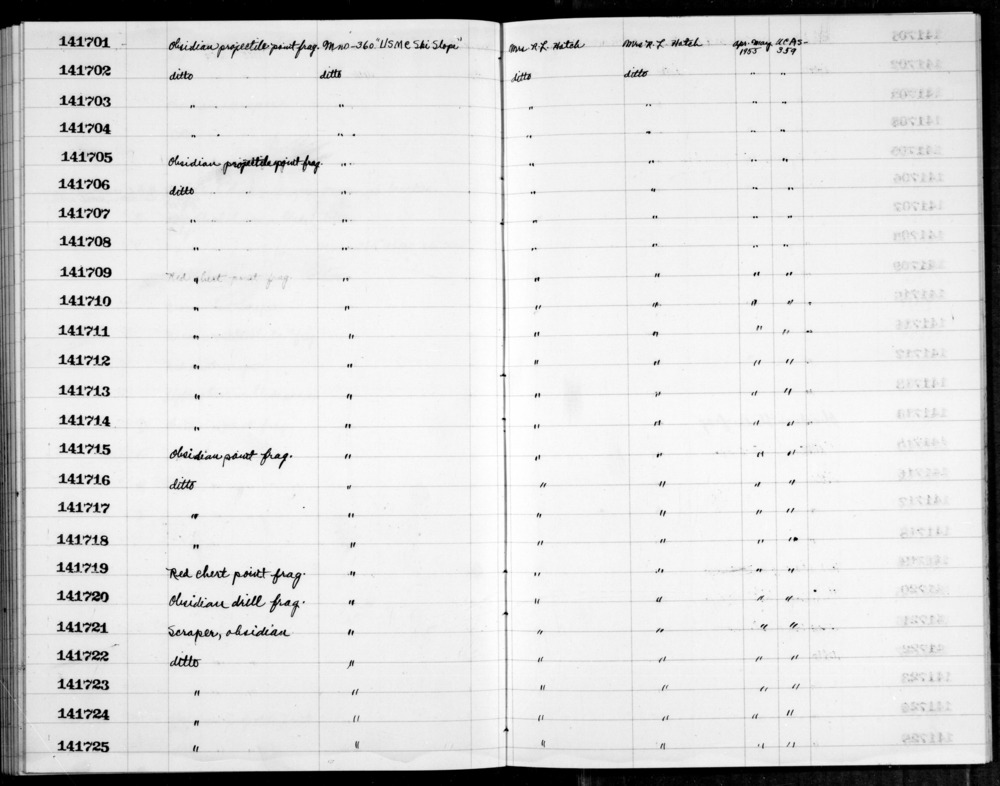 141701 Obsidian projectile point frag. Mno-360 "USMC Ski Slope" Mrs R.L. Hatch Mrs R.L. Hatch Apr-May 1955 UCAS-359
141702 ditto ditto ditto ditto " "
141703 " " " " " "
141704 " " " " " "
141705 Obsidian projectile point frag. " " " " "
141706 ditto " " " " "
141707 " " " " " "
141708 " " " " " "
141709 " " " " " "
141710 " " " " " "
141711 " " " " " "
141712 " " " " " "
141713 " " " " " "
141714 " " " " " "
141715 Obsidian point frag. " " " " "
141716 ditto " " " " "
141717 " " " " " "
141718 " " " " " "
141719 Red chert point frag. " " " " "
141720 Obsidian drill frag. " " " " "
141721 Scraper, obsidian " " " " "
141722 ditto " " " " "
141723 " " " " " "
141724 " " " " " "
141725 " " " " " "